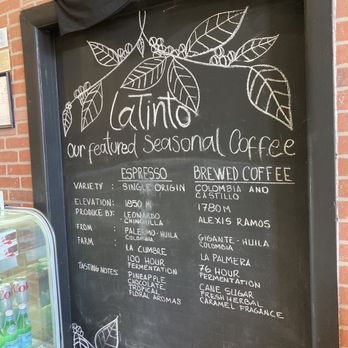 LaTinto
Our featured Seasonal Coffee
ESPRESSO BREWED COFFEE
VARIETY : SINGLE ORIGIN COLOMBIA AND
CASTILLO
ELEVATION: 1850 M 1780 M
PRODUCE BY: LEONARDO ALEXIS RAMOS
CHINCHILLA
FROM : PALERMO-HUILA GIGANTE-HUILA
COLOMBIA COLOMBIA
FARM : LA CUMBRE LA PALMERA
100 HOUR 76 HOUR
FERMENTATION FERMENTATION
TASTING NOTES: PINEAPPLE CANE SUGAR
CHOCOLATE FRESH HERBAL
TROPICAL CARAMEL FRAGANCE
FLORAL AROMAS